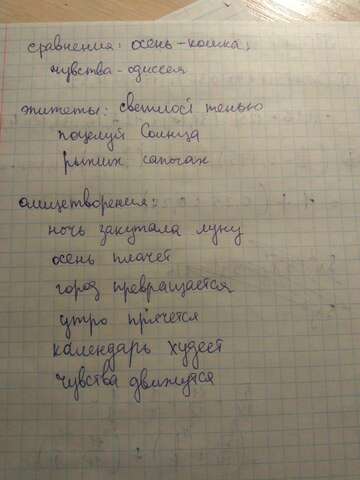 сравнения: осень-кошка;
чувства-одиссея
эпитеты: светилась тенью
поцелуй Солнца
рыжих сапогах
олицетворения:
ночь закутала луну
осень плачет
город превращается
утро прячется
календарь худеет
чувства движутся